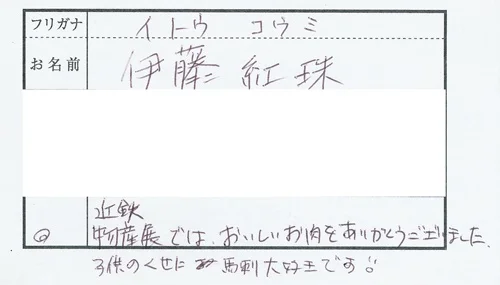 フリガナ イトウ コウミ
お名前 伊藤 紅珠
近鉄
物産展では、おいしいお肉をありがとうございました。
子供のくせに 馬刺大好きです